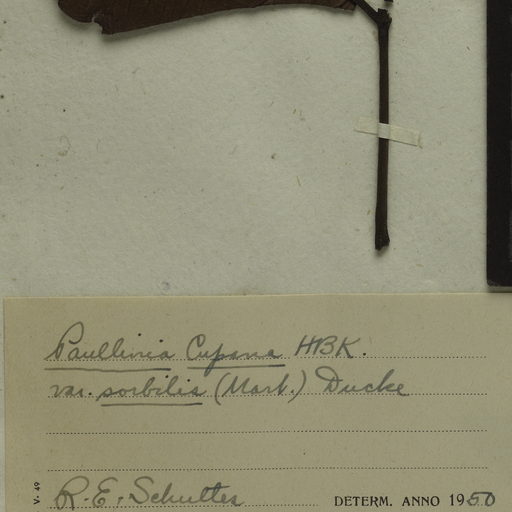 Paullinia Cupana HBK.
var. sorbilis (Mart.) Ducke
V-49
R. E. Schultes DETERM. ANNO 1950